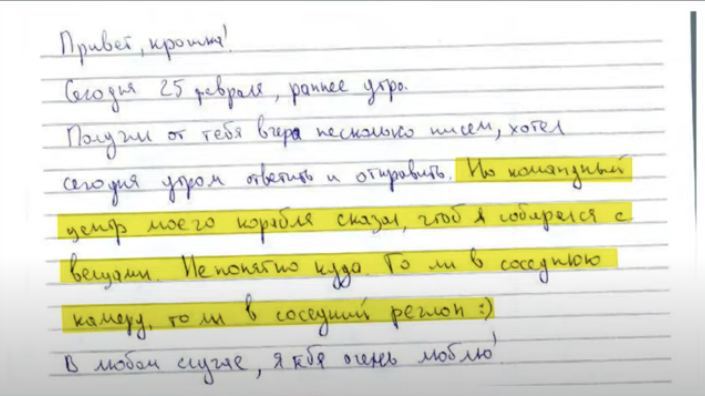 Привет, крошка!
Сегодня 25 февраля, раннее утро.
Получил от тебя вчера несколько писем, хотел
сегодня утром ответить и отправить. Но командный
центр моего корабля сказал, чтоб я собирался с
вещами. Непонятно куда. То ли в соседнюю
камеру, то ли в соседний регион :)
В любом случае, я тебя очень люблю!